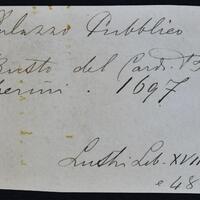 Palazzo Pubblico
Busto del Card. B
berini . 1697
Lib. XVIII
e 48